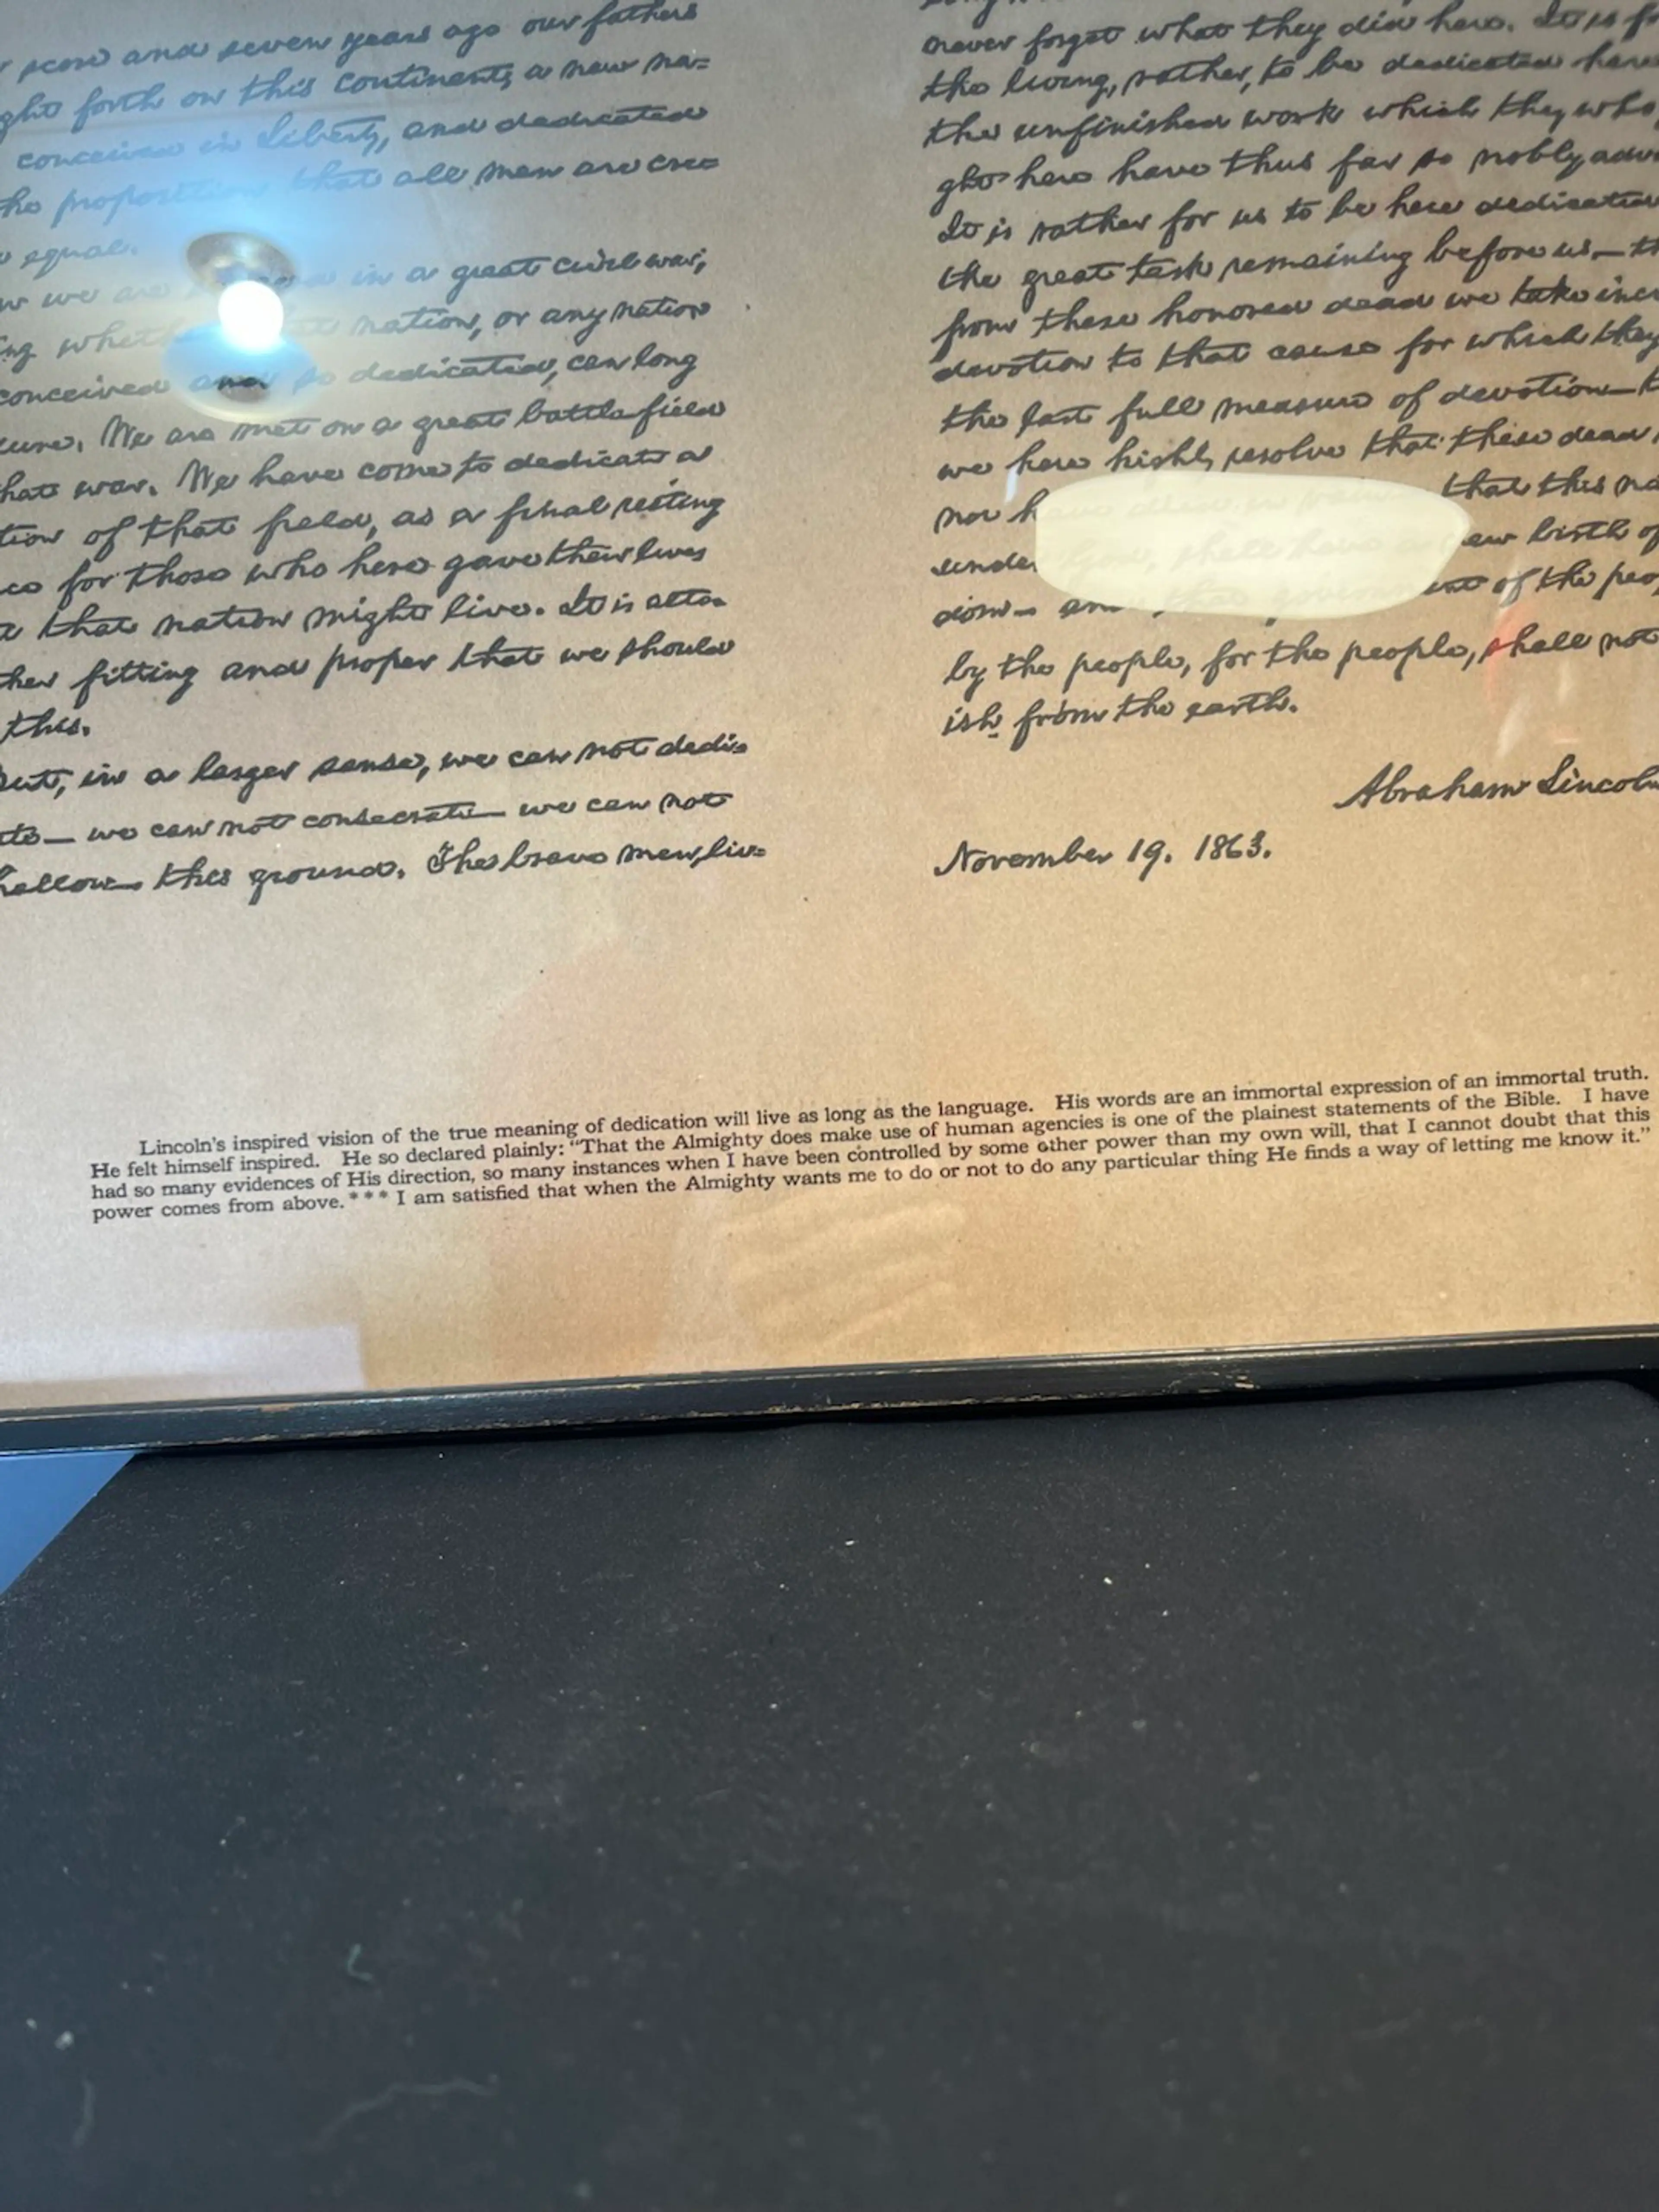 score and seven years ago our fathers
ght forth on this continent, a new na=
conceived in Liberty, and dedicated
proposition that all men are cre=
equal.
we are in a great civil war,
ng whether nation, or any nation
conceived and so dedicated, can long
dure. We are met on a great battle-field
that war. We have come to dedicate a
tion of that field, as a final resting
ce for those who here gave their lives
that nation might live. It is alto=
ther fitting and proper that we should
this.
But, in a larger sense, we can not dedi=
te— we can not consecrate— we can not
hallow— this ground. The brave men, liv=
never forget what they did here. It is f
the living, rather, to be dedicated here
the unfinished work which they who
ght here have thus far so nobly adv
It is rather for us to be here dedicated
the great task remaining before us— th
from these honored dead we take incr
devotion to that cause for which they
the last full measure of devotion— t
we here highly resolve that these dead
not h that this na
under birth of
dom— and of the peo
by the people, for the people, shall not
ish from the earth.
Abraham Lincoln
November 19. 1863.
Lincoln's inspired vision of the true meaning of dedication will live as long as the language. His words are an immortal expression of an immortal truth.
He felt himself inspired. He so declared plainly: "That the Almighty does make use of human agencies is one of the plainest statements of the Bible. I have
had so many evidences of His direction, so many instances when I have been controlled by some other power than my own will, that I cannot doubt that this
power comes from above. * * * I am satisfied that when the Almighty wants me to do or not to do any particular thing He finds a way of letting me know it."